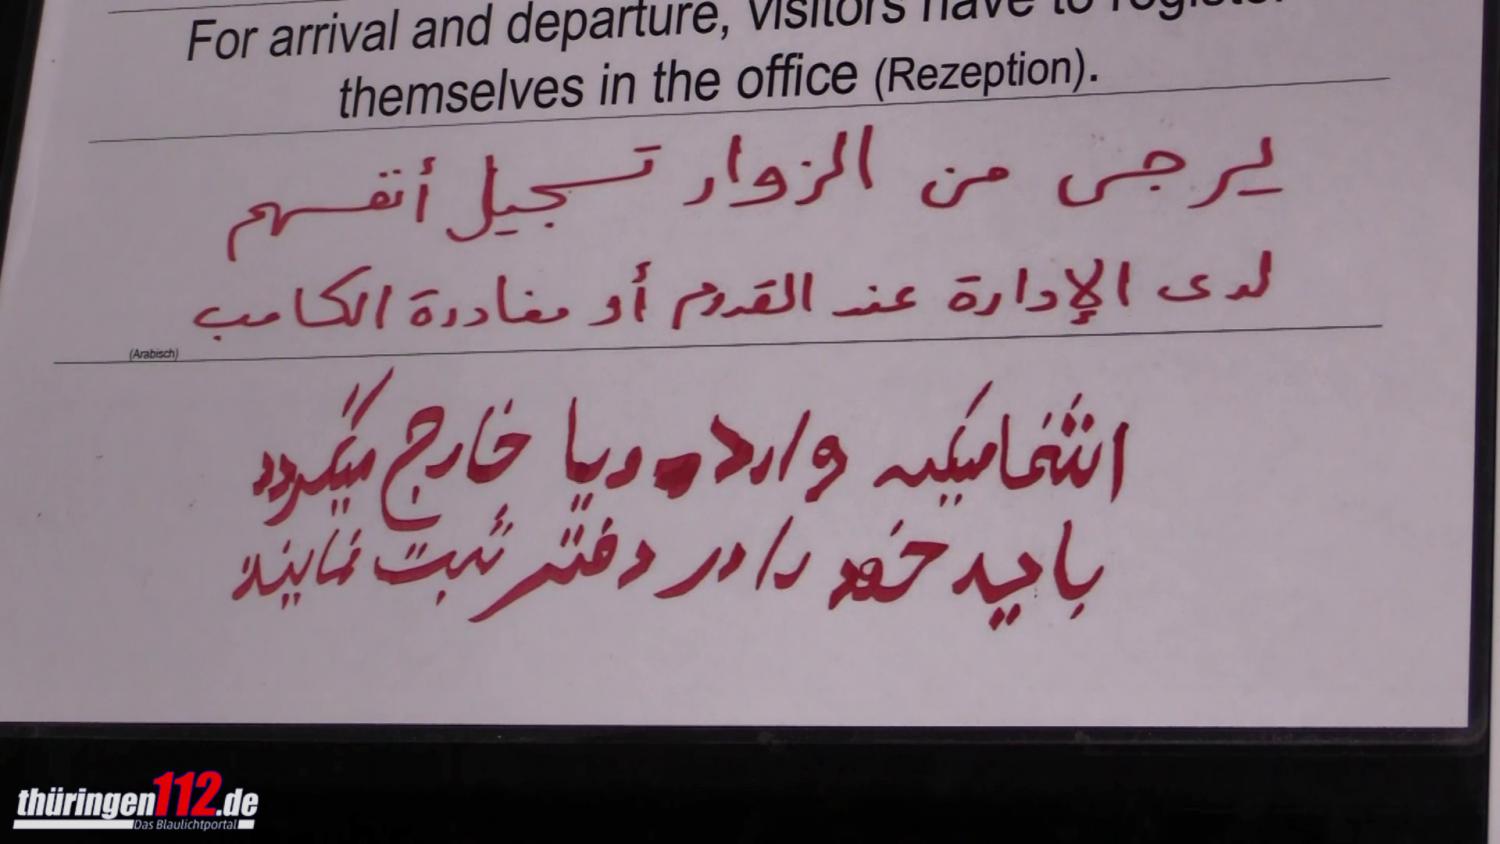 For arrival and departure, visitors have to register
themselves in the office (Rezeption).
يرجى من الزوار تسجيل أنفسهم
لدى الإدارة عند القدوم أو مغادرة الكامب
(Arabisch)
وارد ويا خارج میگردد
باید خود را در دفتر ثبت نمایند
thüringen112.de
Das Blaulichtportal